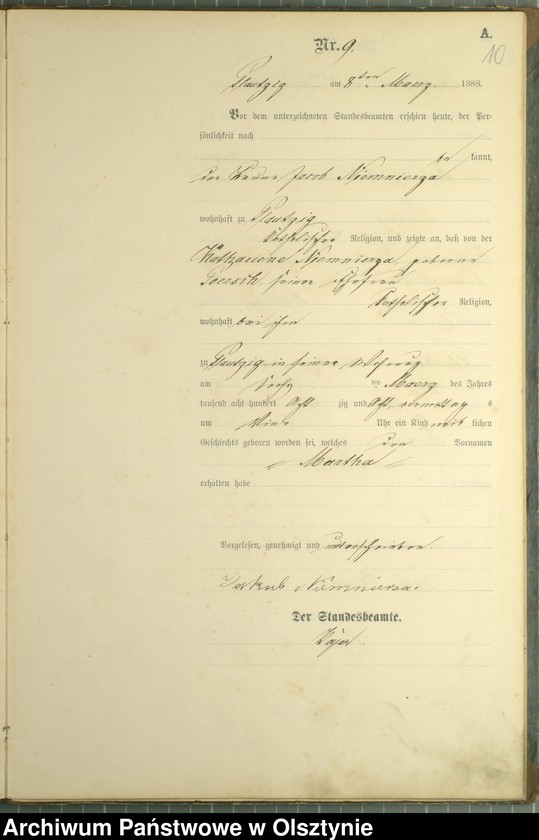 A.
10
Nr. 9.
Plautzig am 8ten Maerz 1888.
Vor dem unterzeichneten Standesbeamten erschien heute, der Per-
sönlichkeit nach
be kannt,
der Jacob Niemnierza
wohnhaft zu Plautzig
katholischer Religion, und zeigte an, daß von der
Katharine Niemnierza geborene
seiner Ehefrau
katholischer Religion,
wohnhaft bei ihm
zu Plautzig in seiner Wohnung
am sechs ten Maerz des Jahres
tausend acht hundert Acht zig und Acht, vormittag s
um Uhr ein Kind weib lichen
Geschlechts geboren worden sei, welches den Vornamen
Martha
erhalten habe
Vorgelesen, genehmigt und unterschrieben.
Jakub Niemnierza.
Der Standesbeamte.
Archiwum Państwowe w Olsztynie